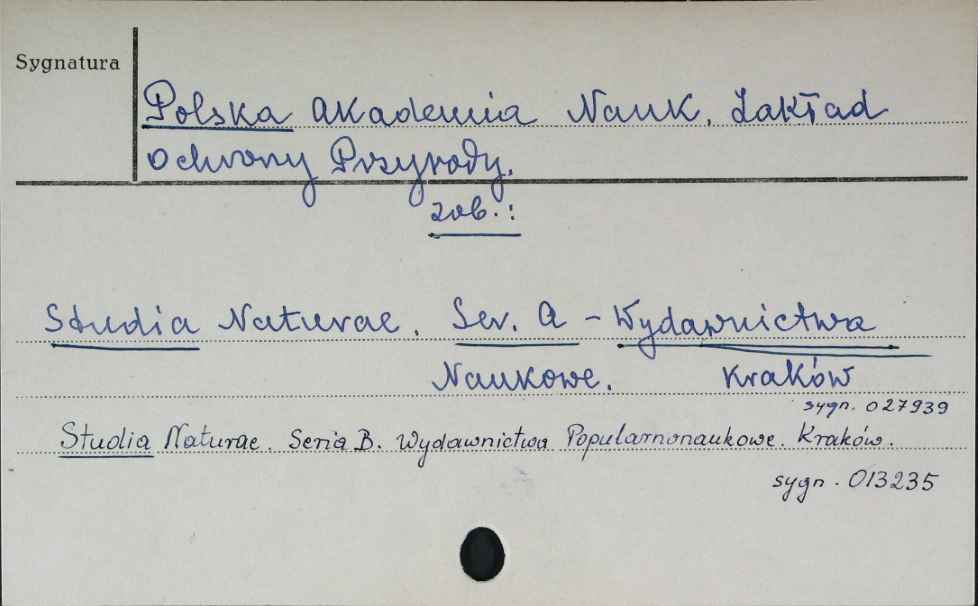 Sygnatura
Polska Akademia Nauk. Zakład
Ochrony Przyrody.
zob.:
Studia Naturae. Ser. A - Wydawnictwa
Naukowe. Kraków
sygn. 027939
Studia Naturae. Seria B. Wydawnictwa Popularnonaukowe. Kraków.
sygn. 013235